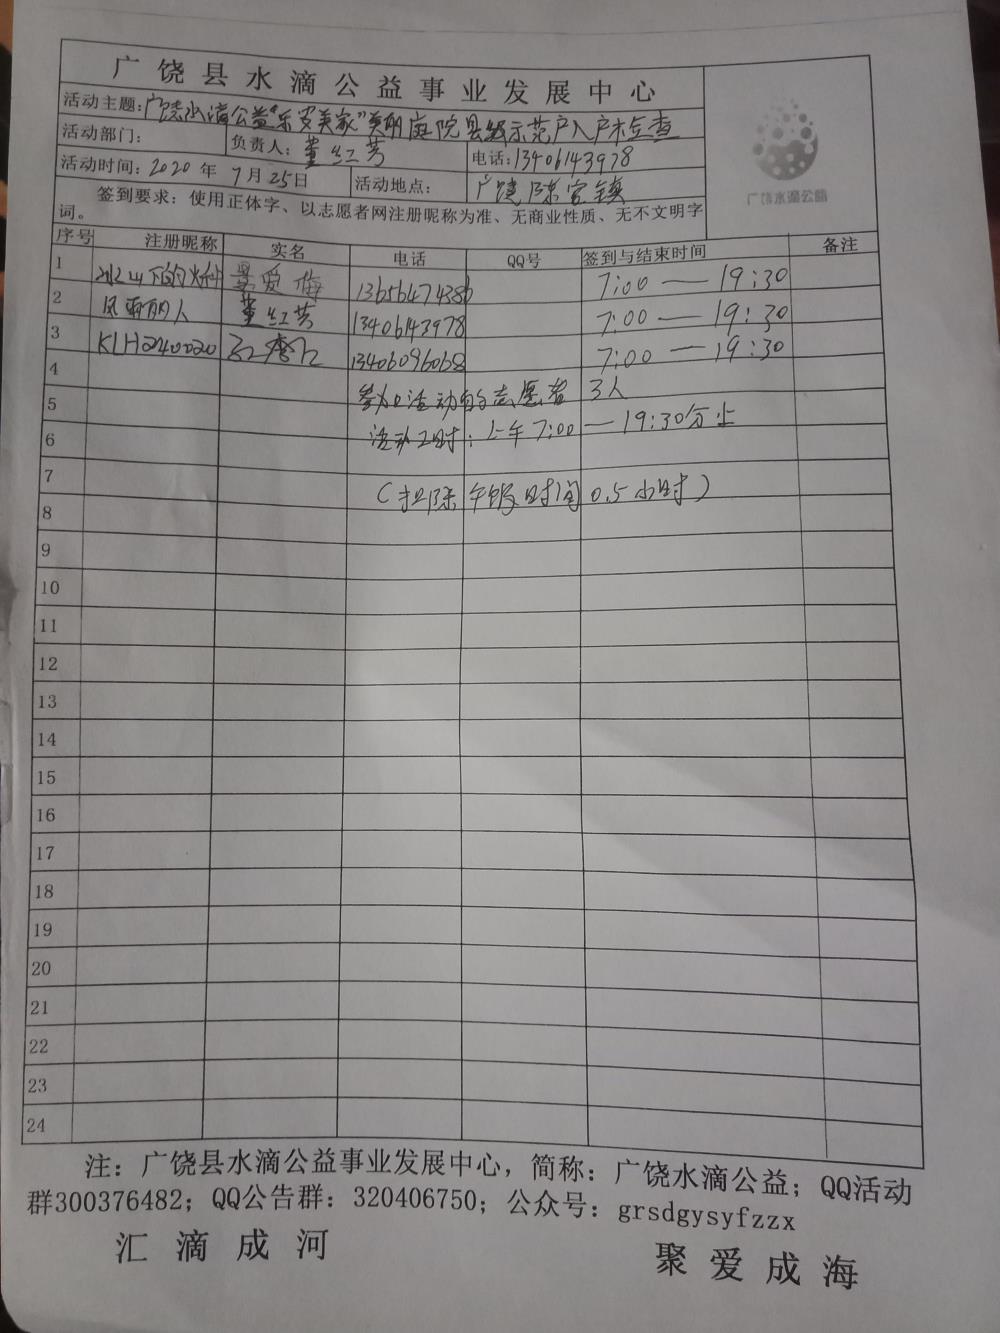 广饶县水滴公益事业发展中心
活动主题:广饶水滴公益"东安美家"美丽庭院县级示范户入户检查
活动部门: 负责人:董红芳 电话:13406143978
活动时间:2020年7月25日 活动地点: 广饶陈官镇
签到要求:使用正体字、以志愿者网注册昵称为准、无商业性质、无不文明字
词。
广饶水滴公益
序号 注册昵称 实名 电话 QQ号 签到与结束时间 备注
1 冰山下的火种 爱梅 13656474386 7:00—19:30
2 风雨的人 董红芳 13406143978 7:00—19:30
3 KLH2140020 13406096068 7:00—19:30
4
参加活动的志愿者 3人
5
活动工时:上午7:00—19:30分止
6
7
(扣除午饭时间0.5小时)
8
9
10
11
12
13
14
15
16
17
18
19
20
21
22
23
24
注:广饶县水滴公益事业发展中心,简称:广饶水滴公益;QQ活动
群300376482;QQ公告群:320406750;公众号:grsdgysyfzzx
汇滴成河 聚爱成海